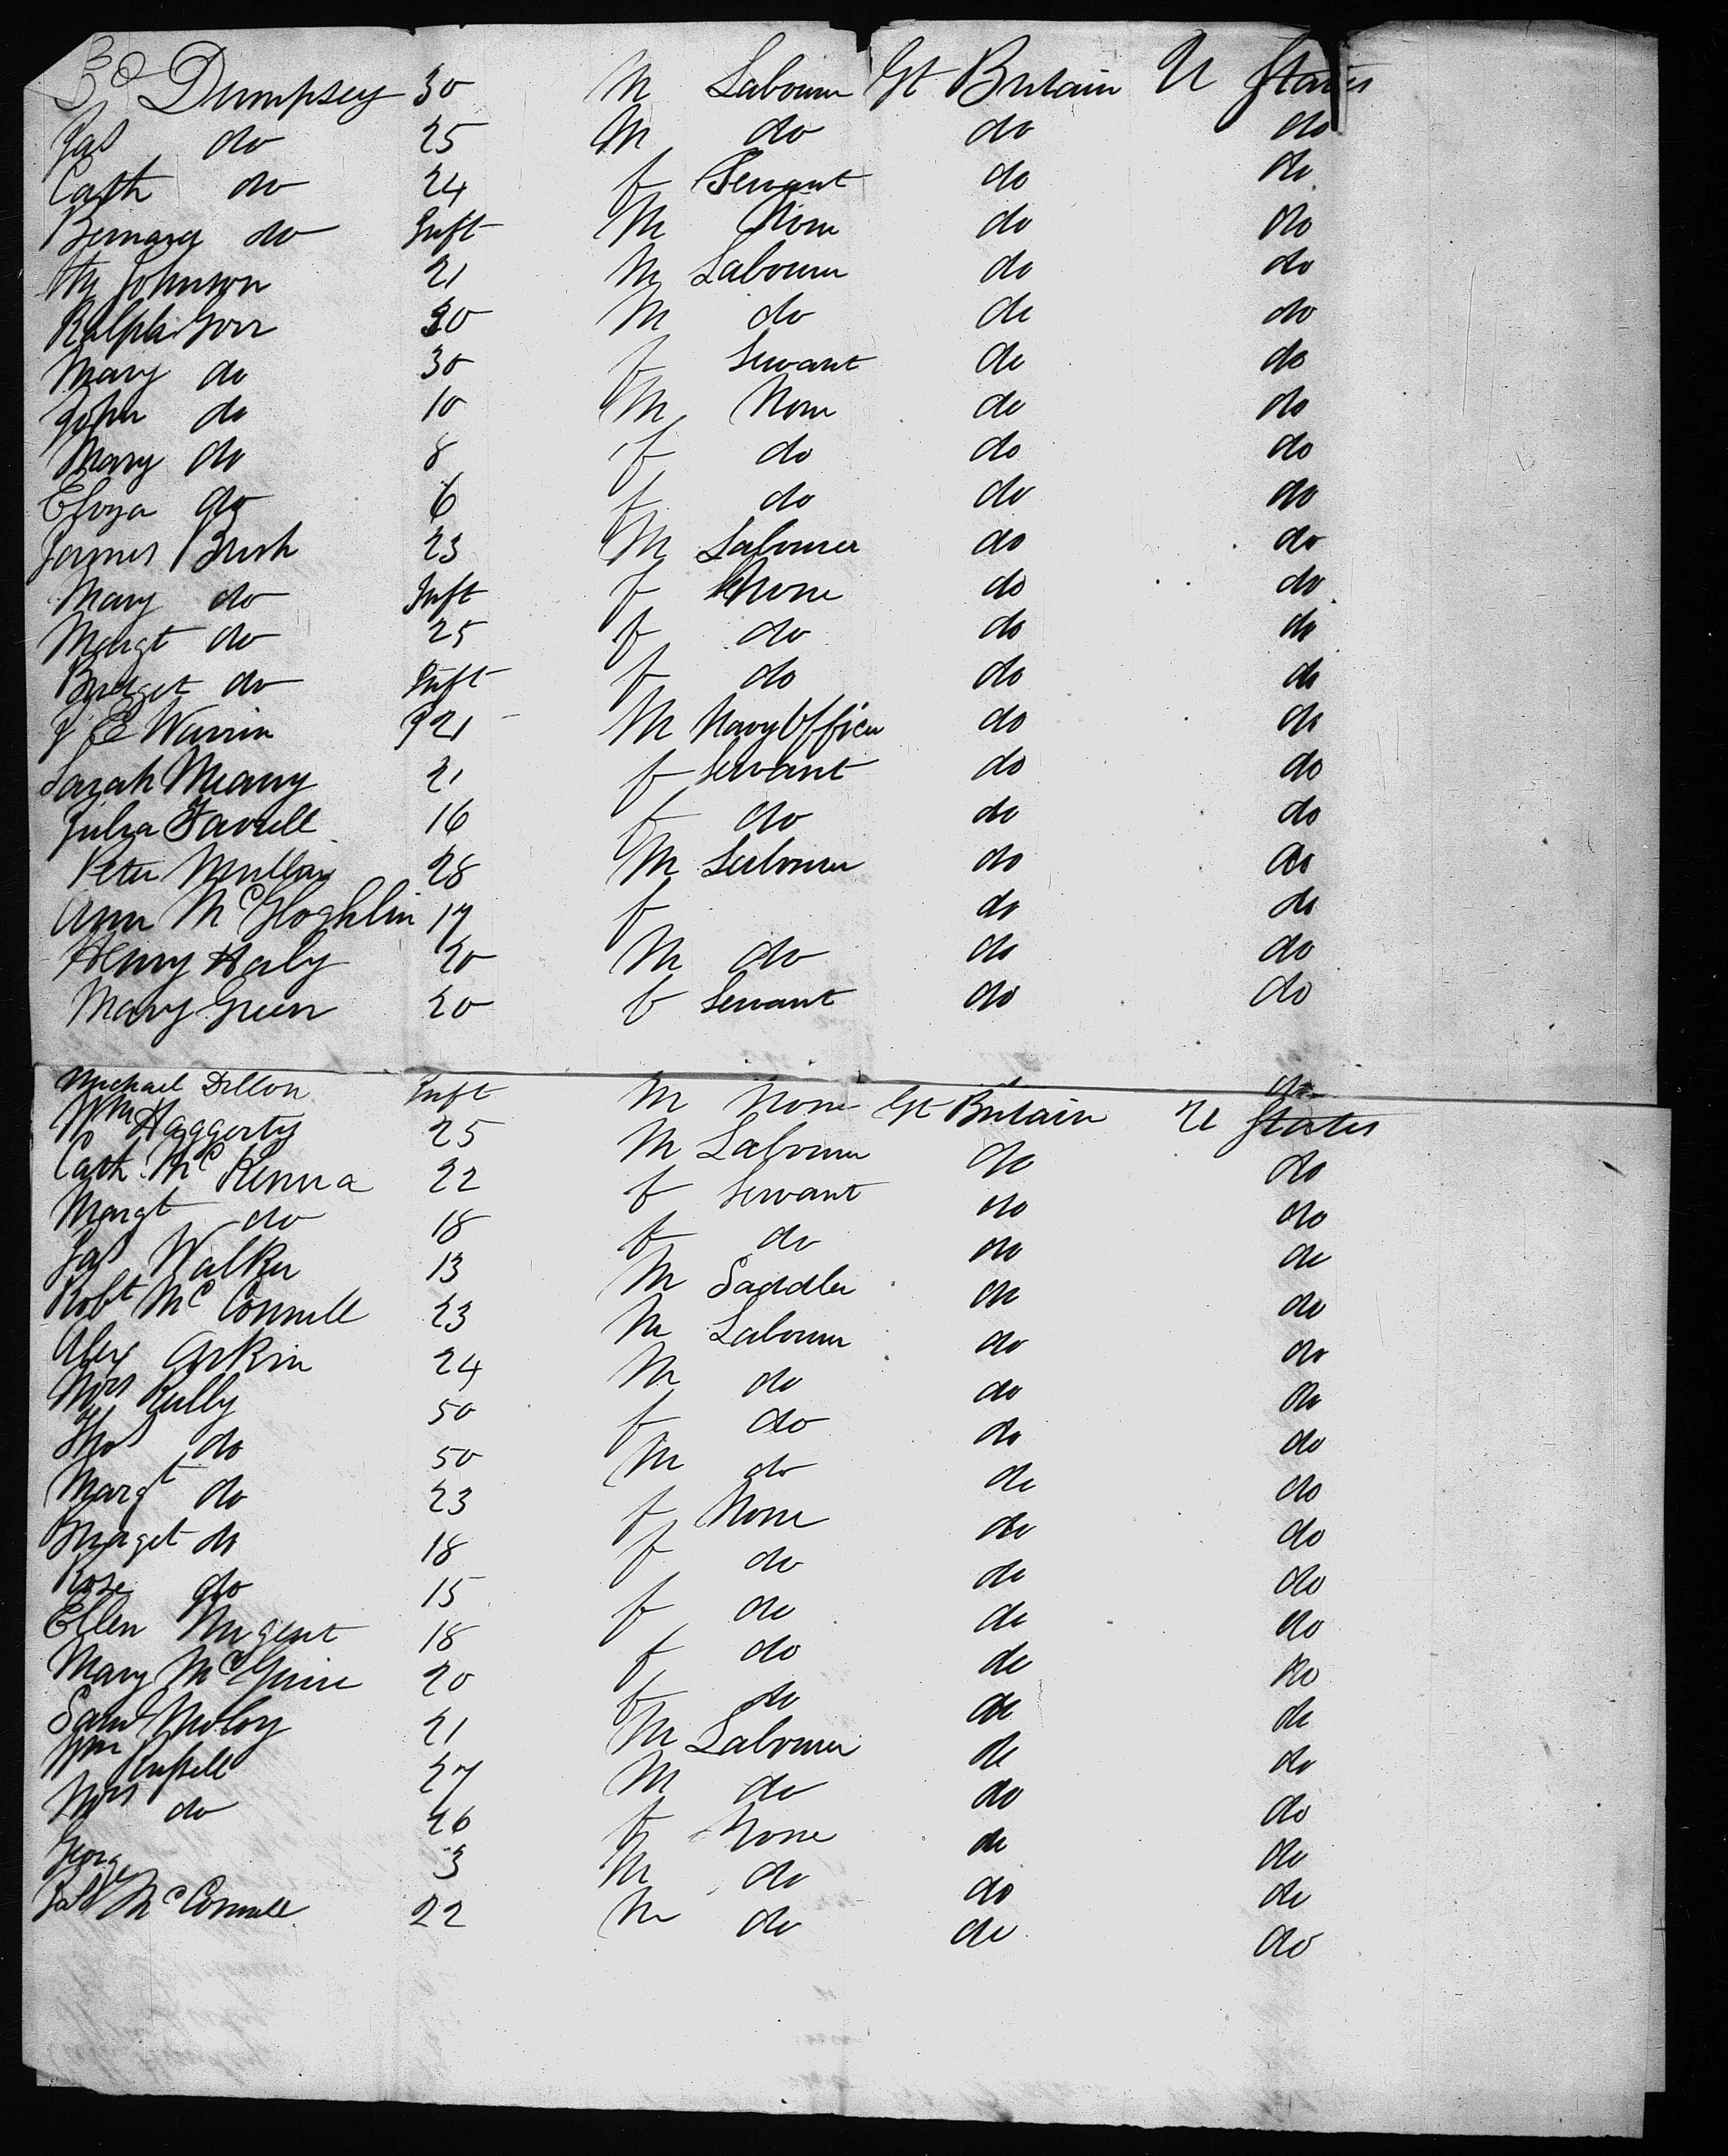 Dempsey 30 M Labourer Gt Britain U States
Jas do 25 M do do do
Cath do 24 f Servant do do
Bernard do Inft M None do do
Wm Johnson 21 M Labourer do do
Ralph Gorr 30 M do do do
Mary do 30 f Servant do do
John do 10 M None do do
Mary do 8 f do do do
Eliza do 6 f do do do
James Brush 23 M Labourer do do
Mary do Inft f None do do
Margt do 25 f do do do
Bridget do Inft f do do do
J E Warrin 21 M Navy Officer do do
Sarah Meany 21 f Servant do do
Julia Farrell 16 f do do do
Peter Mullin 28 M Labourer do do
Ann McGloghlin 17 f do do
Henry Haly 20 M do do do
Mary Green 20 f Servant do do
Michael Dillon Inft M None Gt Britain U States
Wm Haggerty 25 M Labourer do do
Cath McKenna 22 f Servant do do
Margt do 18 f do do do
Jas Walker 13 M Saddler do do
Robt McConnell 23 M Labourer do do
Alex Arkin 24 M do do do
Mrs Kelly 50 f do do do
Thos do 50 M do do do
Margt do 23 f None do do
do 18 f do do do
Rose do 15 f do do do
Ellen Nugent 18 f do do do
Mary McGuire 20 f do do do
Saml Meloy 21 M Labourer do do
Wm Russell 27 M do do do
Mrs do 26 f None do do
George 3 M do do do
Jas McConnell 22 M do do do